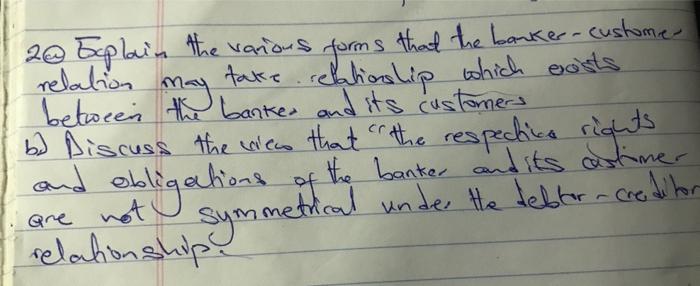 2a Explain the various forms that the banker-customer
relation may take. relationship which exists
between the banker and its customers
b) Discuss the view that "the respective rights
and obligations of the banker and its customer
are not symmetrical under the debtor-creditor
relationship.